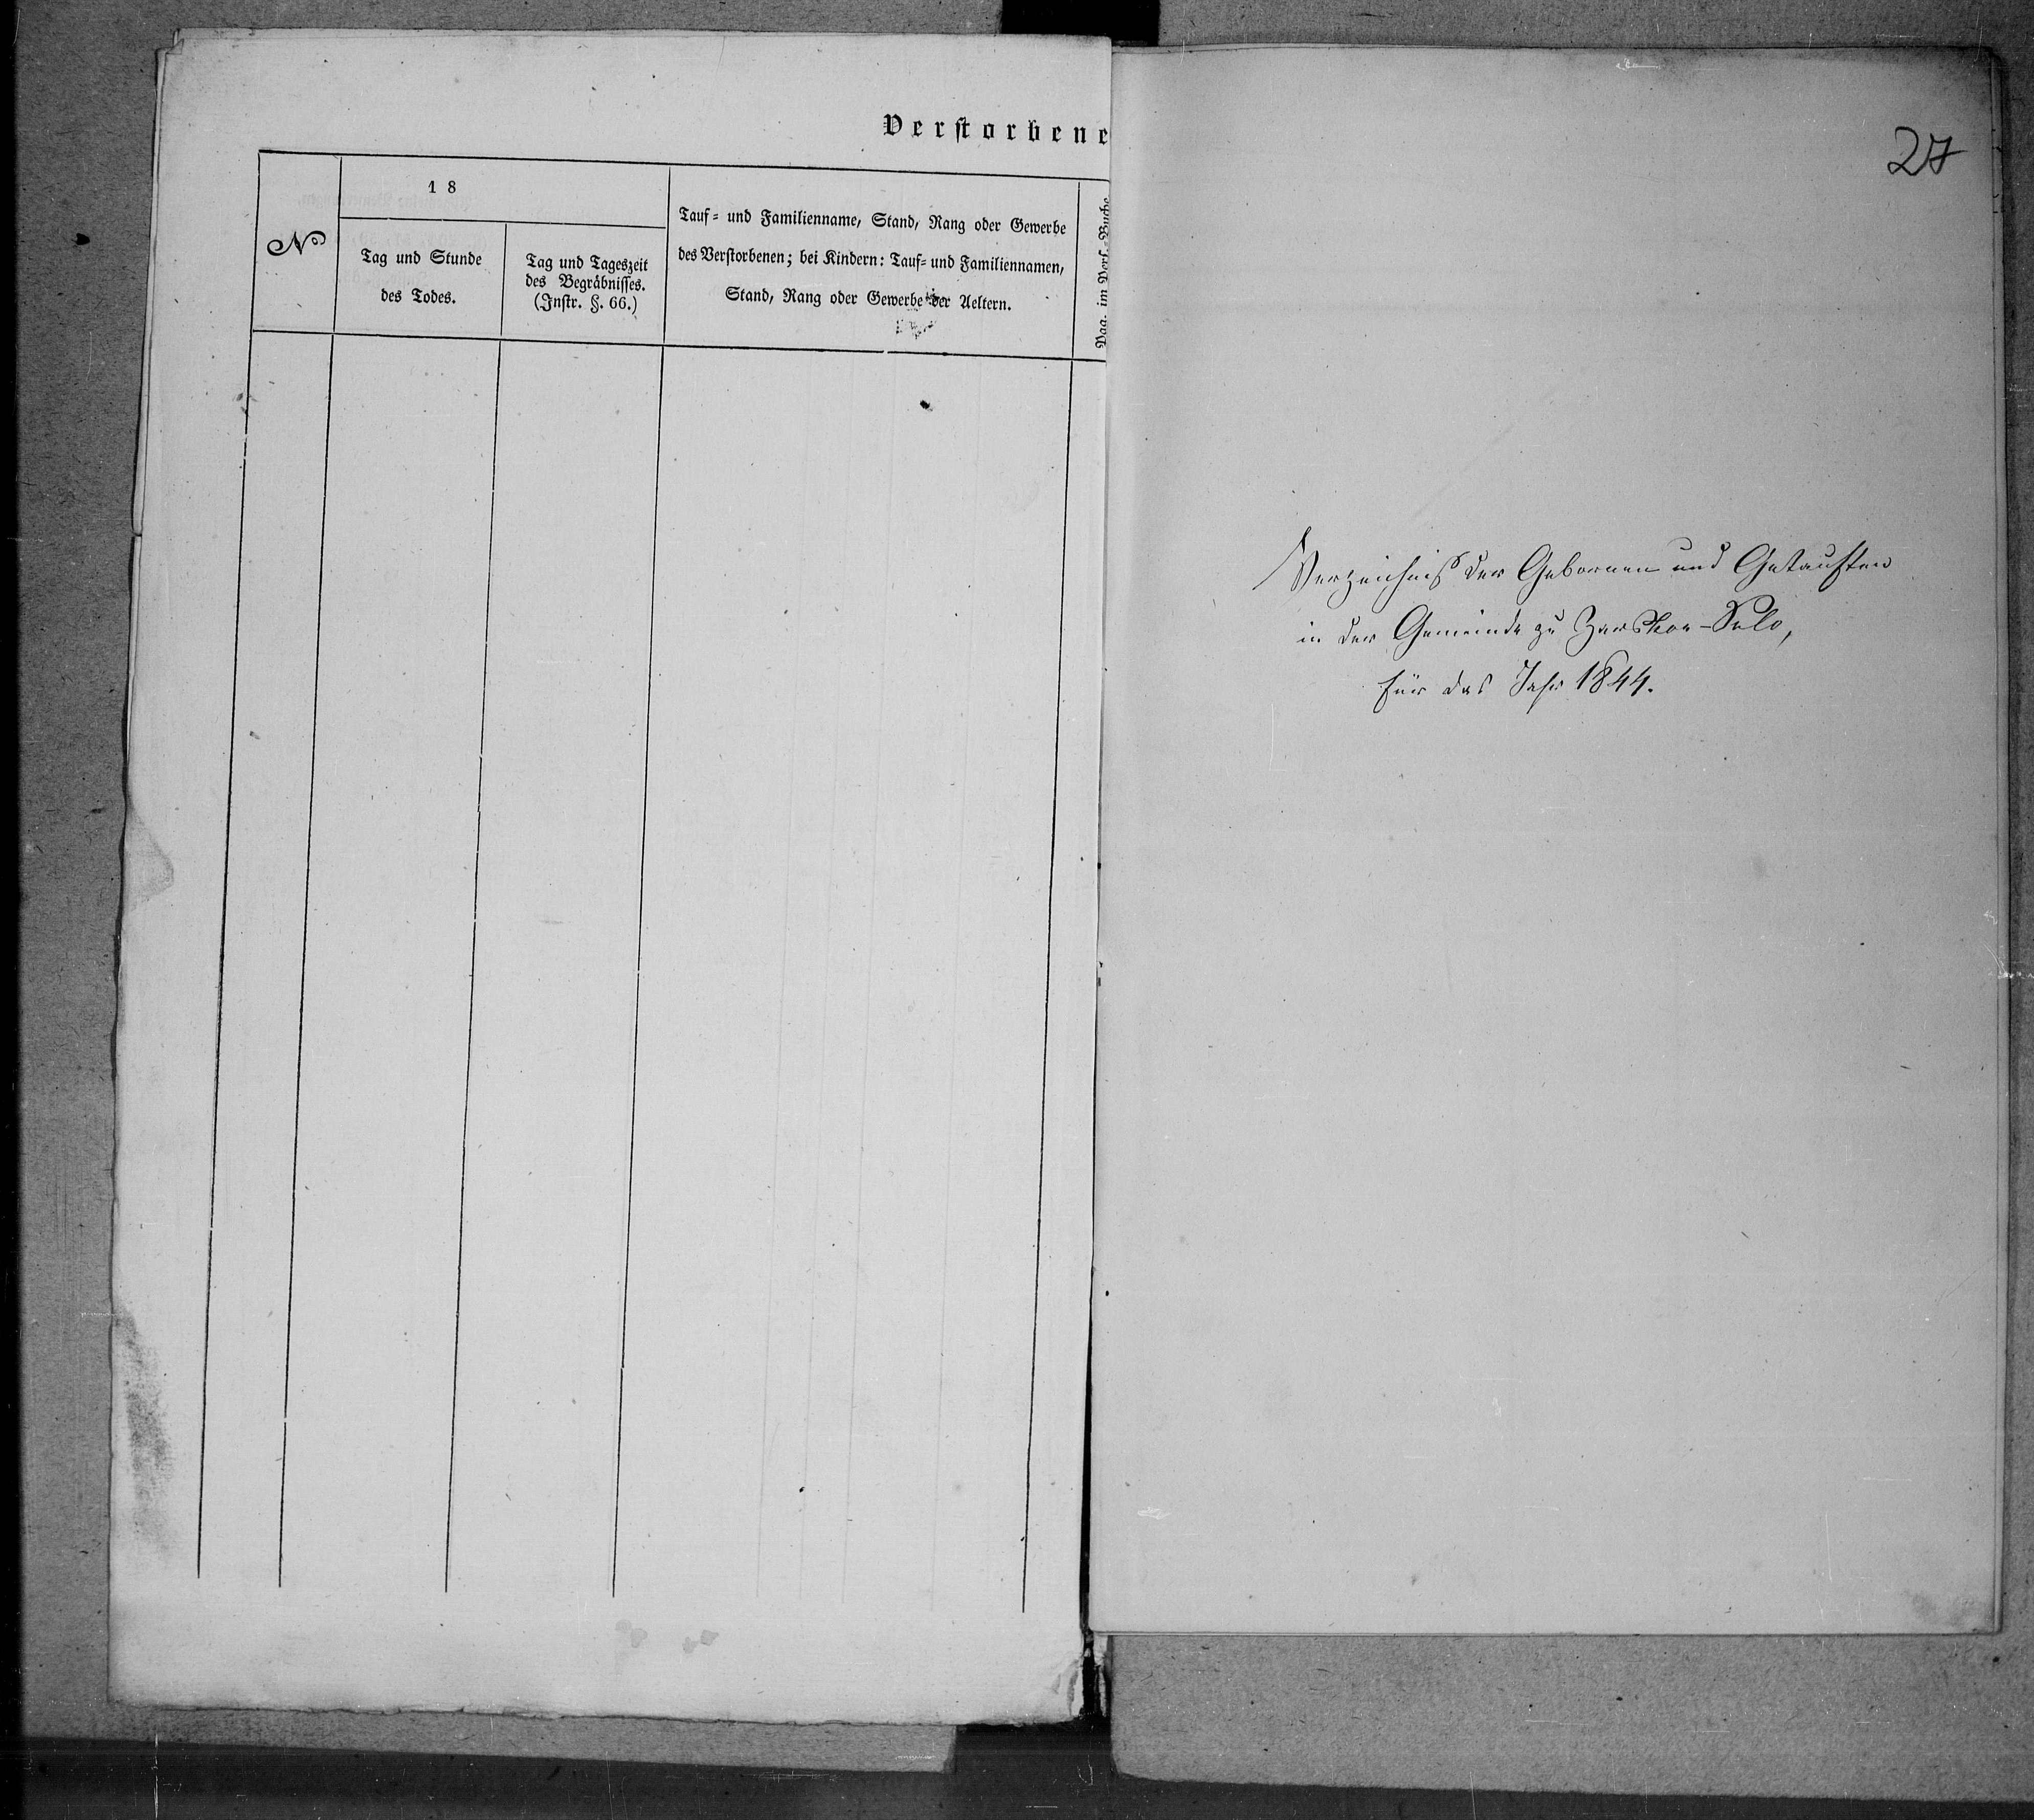 Verstorbene
№
1 8
Tag und Stunde
des Todes.
Tag und Tageszeit
des Begräbnisses.
(Instr. §. 66.)
Tauf- und Familienname, Stand, Rang oder Gewerbe
des Verstorbenen; bei Kindern: Tauf- und Familiennamen,
Stand, Rang oder Gewerbe der Aeltern.
Pag. im Pers.-Buche
27
Verzeichniß der Gebornen und Getauften
in der Gemeinde zu Zarskoe-Selo,
für das Jahr 1844.